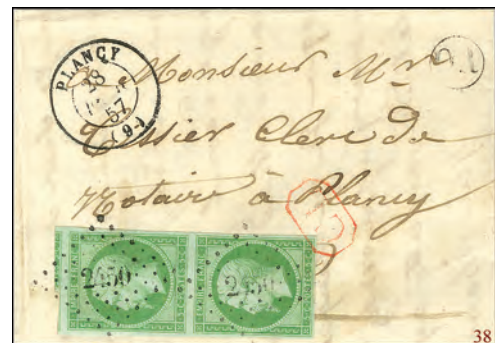 PLANCY
28
57
(9)
Monsieur Mr
Tessier Clerc de
Notaire à Plancy
2450
2450
38